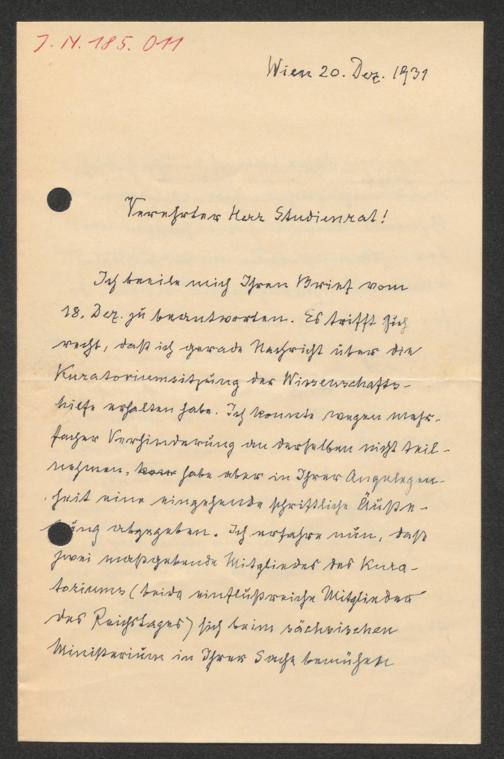 J. N. 185.011
Wien 20. Dez. 1931
Verehrter Herr Studienrat!
Ich beeile mich Ihren Brief vom
18. Dez. zu beantworten. Es trifft sich
recht, daß ich gerade Nachricht über die
Kuratoriumsitzung der Wissenschafts-
hilfe erhalten habe. Ich konnte wegen mehr-
facher Verhinderung an derselben nicht teil-
nehmen, habe aber in Ihrer Angelegen-
heit eine eingehende schriftliche Äuße-
rung abgegeben. Ich erfahre nun, daß
zwei maßgebende Mitglieder des Kura-
toriums (beide einflußreiche Mitglieder
des Reichstages) sich beim sächsischen
Ministerium in Ihrer Sache bemühen